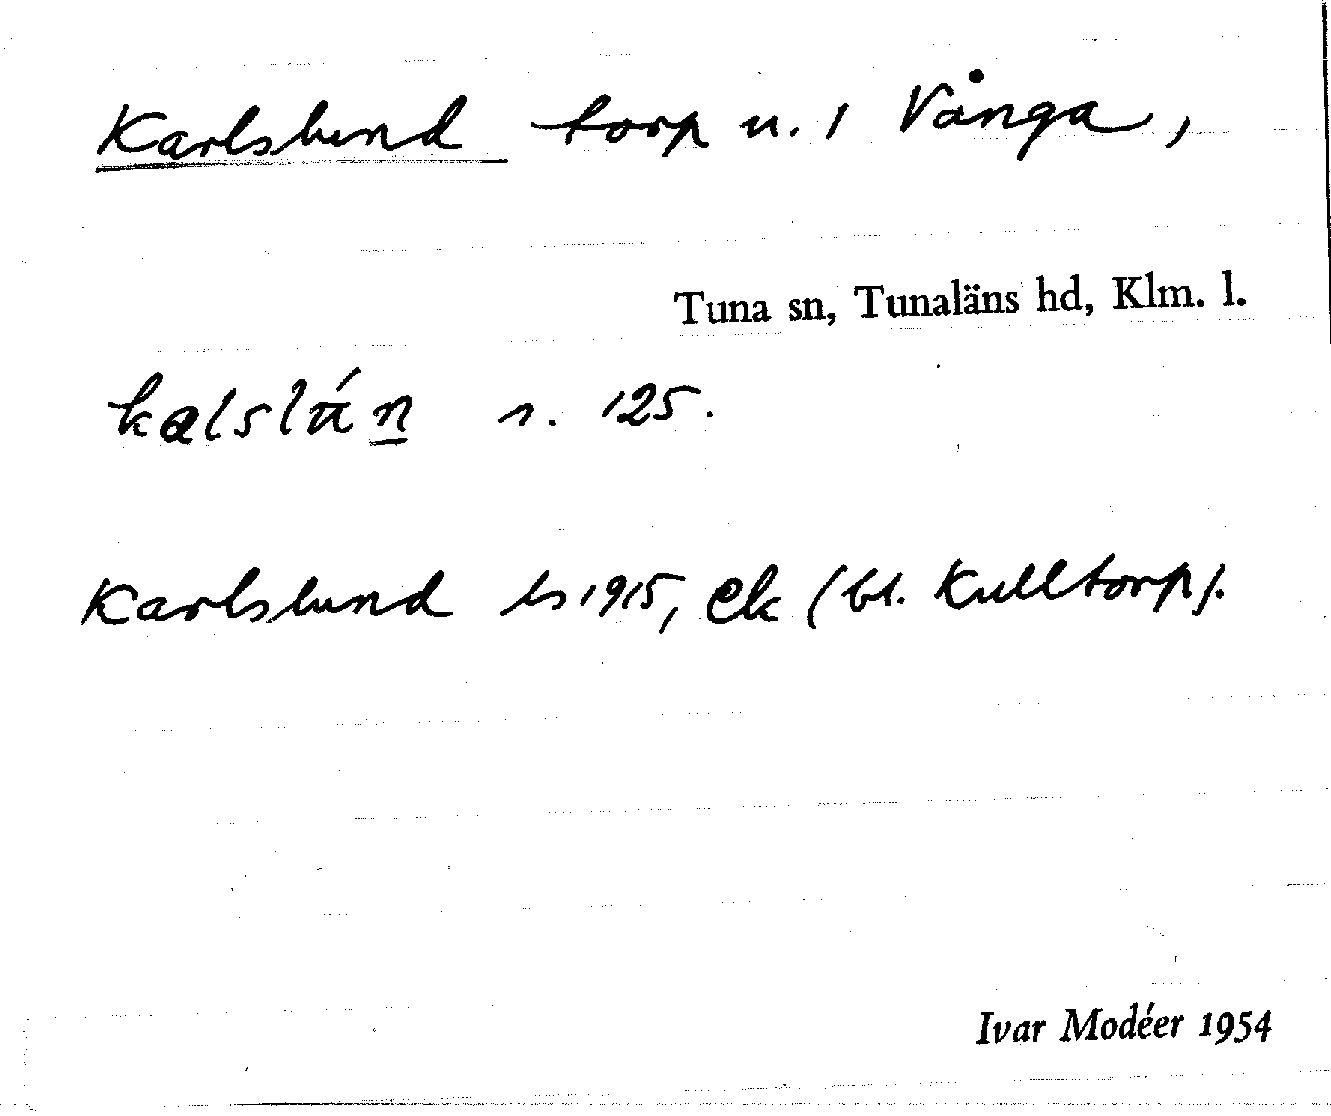 Karlslund torp u. 1 Vånga,
Tuna sn, Tunaläns hd, Klm. l.
kalslún s. 125.
Karlslund ls 1915, Ek (bl. Kulltorp).
Ivar Modéer 1954